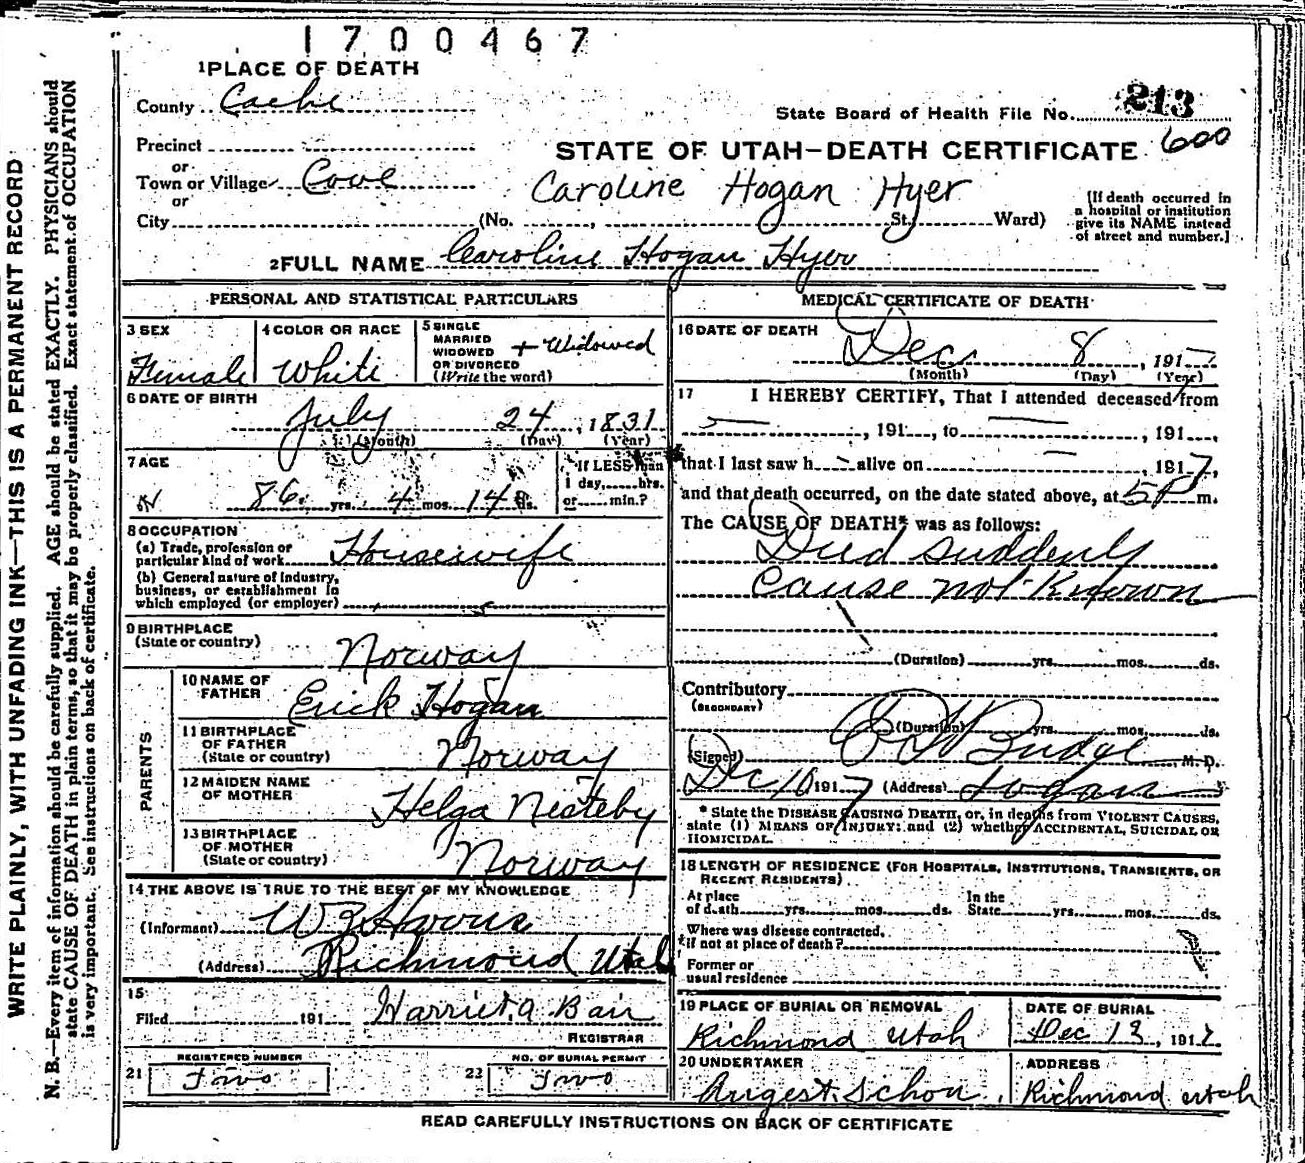 1700467
1 PLACE OF DEATH
County Cache
State Board of Health File No. 213
600
Precinct
or
Town or Village Cove
or
City (No. , St. Ward)
STATE OF UTAH—DEATH CERTIFICATE
Caroline Hogan Hyer
[If death occurred in
a hospital or institution
give its NAME instead
of street and number.]
2 FULL NAME Caroline Hogan Hyer
PERSONAL AND STATISTICAL PARTICULARS
3 SEX
Female
4 COLOR OR RACE
White
5 SINGLE
MARRIED
WIDOWED
OR DIVORCED
(Write the word)
+ Widowed
6 DATE OF BIRTH
July 24, 1831
(Month) (Day) (Year)
7 AGE
86 yrs. 4 mos. 14 ds.
If LESS than
1 day, hrs.
or min.?
8 OCCUPATION
(a) Trade, profession or
particular kind of work Housewife
(b) General nature of Industry,
business, or establishment in
which employed (or employer)
9 BIRTHPLACE
(State or country)
Norway
PARENTS
10 NAME OF
FATHER
Erick Hogan
11 BIRTHPLACE
OF FATHER
(State or country)
Norway
12 MAIDEN NAME
OF MOTHER
Helga Nesteby
13 BIRTHPLACE
OF MOTHER
(State or country)
Norway
14 THE ABOVE IS TRUE TO THE BEST OF MY KNOWLEDGE
(Informant)
(Address) Richmond Utah
15
Filed 191 Harriet A Bair
REGISTRAR
21
REGISTERED NUMBER
Two
22
NO. OF BURIAL PERMIT
Two
MEDICAL CERTIFICATE OF DEATH
16 DATE OF DEATH
Dec 8, 1917
(Month) (Day) (Year)
17 I HEREBY CERTIFY, That I attended deceased from
, 191 , to , 191 ,
that I last saw h alive on , 1917,
and that death occurred, on the date stated above, at 5 P m.
The CAUSE OF DEATH* was as follows:
Died suddenly
Cause not Known
(Duration) yrs. mos. ds.
Contributory
(SECONDARY)
(Duration) yrs. mos. ds.
(Signed) Budge M. D.
Dec 10 1917 (Address) Logan
* State the DISEASE CAUSING DEATH, or, in deaths from VIOLENT CAUSES,
state (1) MEANS OF INJURY: and (2) whether ACCIDENTAL, SUICIDAL OR
HOMICIDAL.
18 LENGTH OF RESIDENCE (FOR HOSPITALS, INSTITUTIONS, TRANSIENTS, OR
RECENT RESIDENTS)
At place
of death yrs. mos. ds.
In the
State yrs. mos. ds.
Where was disease contracted,
if not at place of death?
Former or
usual residence
19 PLACE OF BURIAL OR REMOVAL
Richmond Utah
DATE OF BURIAL
Dec 13, 1917
20 UNDERTAKER
August Schou
ADDRESS
Richmond Utah
READ CAREFULLY INSTRUCTIONS ON BACK OF CERTIFICATE
WRITE PLAINLY, WITH UNFADING INK—THIS IS A PERMANENT RECORD
N. B.—Every item of information should be carefully supplied. AGE should be stated EXACTLY. PHYSICIANS should
state CAUSE OF DEATH in plain terms, so that it may be properly classified. Exact statement of OCCUPATION
is very important. See instructions on back of certificate.